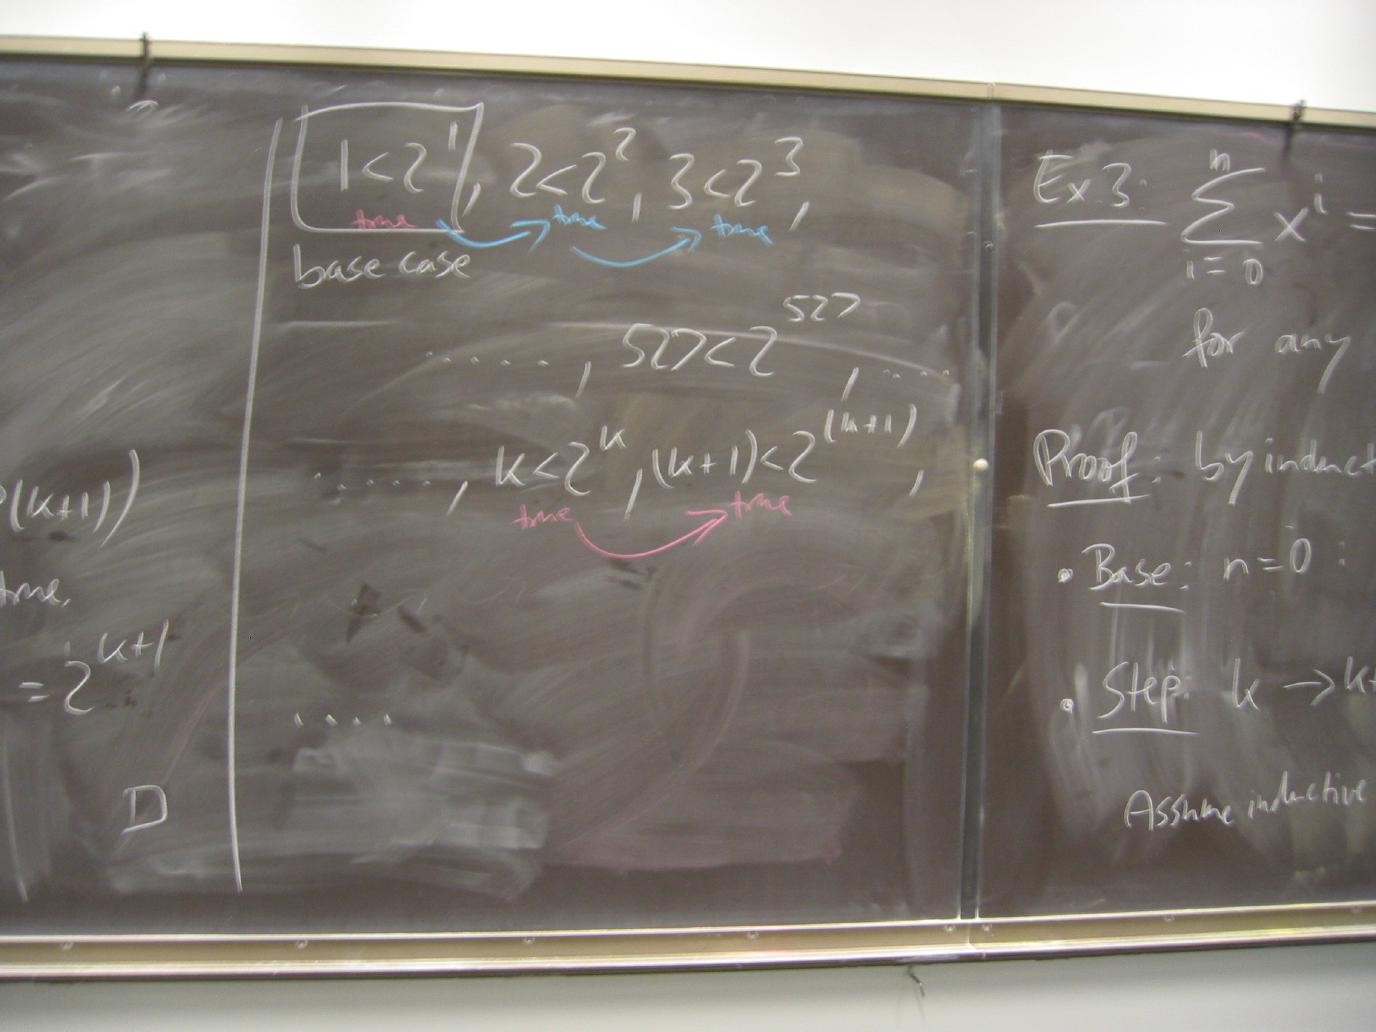 P(k+1))
true.
= 2^{k+1}
1 < 2^1, 2 < 2^2, 3 < 2^3,
true true true
base case
....., 527 < 2^{527}, ....
....., k < 2^k, (k+1) < 2^{(k+1)},
true true
....
Ex.3: \sum_{i=0}^{n} x^i =
for any
Proof: by induct
• Base: n=0 :
• Step: k → k+
Assume inductive